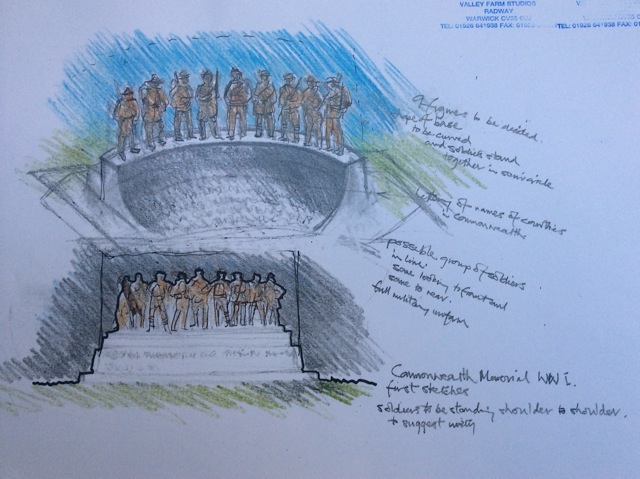 VALLEY FARM STUDIOS
RADWAY
WARWICK CV35
TEL: 01926 641938 FAX:
TEL: 01926 641938 FAX:
9 figures to be decided.
shape of base
to be curved
and soldiers stand
together in semi circle
of names of countries
in commonwealth
possible group of soldiers
in line.
some looking to front and
some to rear.
full military uniform
Commonwealth Memorial WW I.
first sketches
soldiers to be standing shoulder to shoulder.
to suggest unity